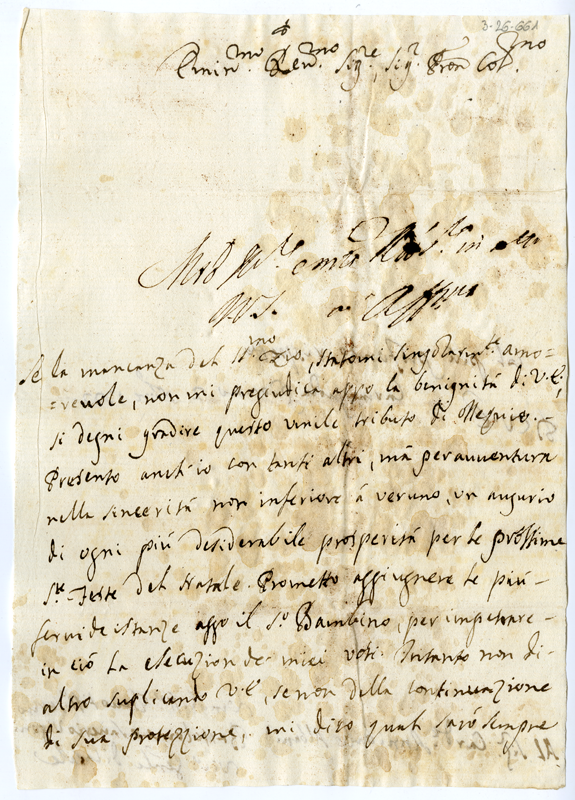 3-26-661
Emin.mo Rev.mo Sig.re Sig.r Pron Col.mo
Se la mancanza del Zio, statomi singolarm.te amo=
=revole, non mi pregiudica appo la benignità di V.E.,
si degni gradire questo umile tributo di ossequio.
Presento anch'io con tanti altri, mà per avventura
nella sincerità non inferiore à veruno, un augurio
di ogni più desiderabile prosperità per le prossime
S.te Feste del Natale. Prometto aggiugnere le più-
fervide istanze appo il S.o Bambino, per impetrare-
in ciò la esecuzion de miei voti. Intanto non di-
altro suplicando V.E., se non della continuazione
di sua protezzione, mi dico qual sarò sempre